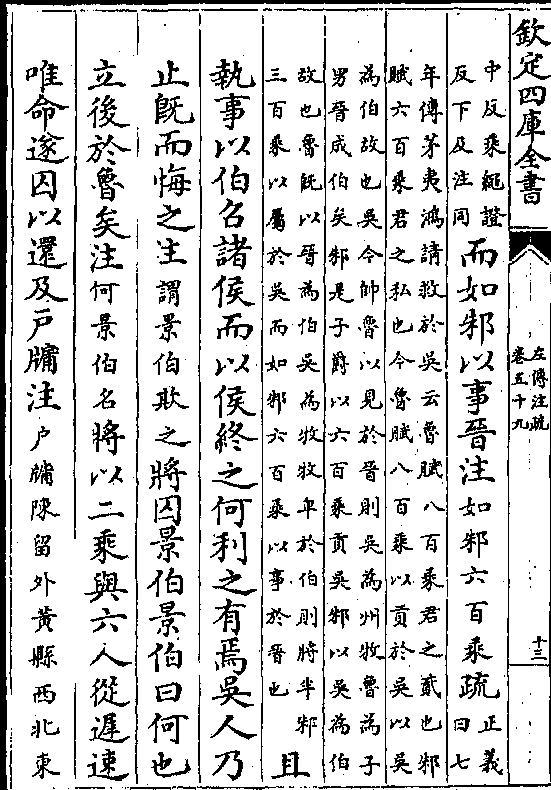 欽定四庫全書
左傳注疏
卷五十九
十三
中反乘繩證
反下及注同
而如邾以事晉注如邾六百乘疏正義
曰七
年傳茅夷鴻請救於吳云魯賦八百乘君之貳也邾
賦六百乘君之私也今魯賦八百乘以貢於吳以吳
為伯故也吳今帥魯以見於晉則吳為州牧魯為子
男晉成伯矣邾是子爵以六百乘貢吳邾以吳為伯
故也魯既以晉為伯吳為牧牧卑於伯則將半邾
三百乘以屬於吳而如邾六百乘以事於晉也
且
執事以伯召諸侯而以侯終之何利之有焉吳人乃
止既而悔之注謂景伯欺之將囚景伯景伯曰何也
立後於魯矣注何景伯名將以二乘與六人從遲速
唯命遂囚以還及戶牖注戶牖陳留外黃縣西北東